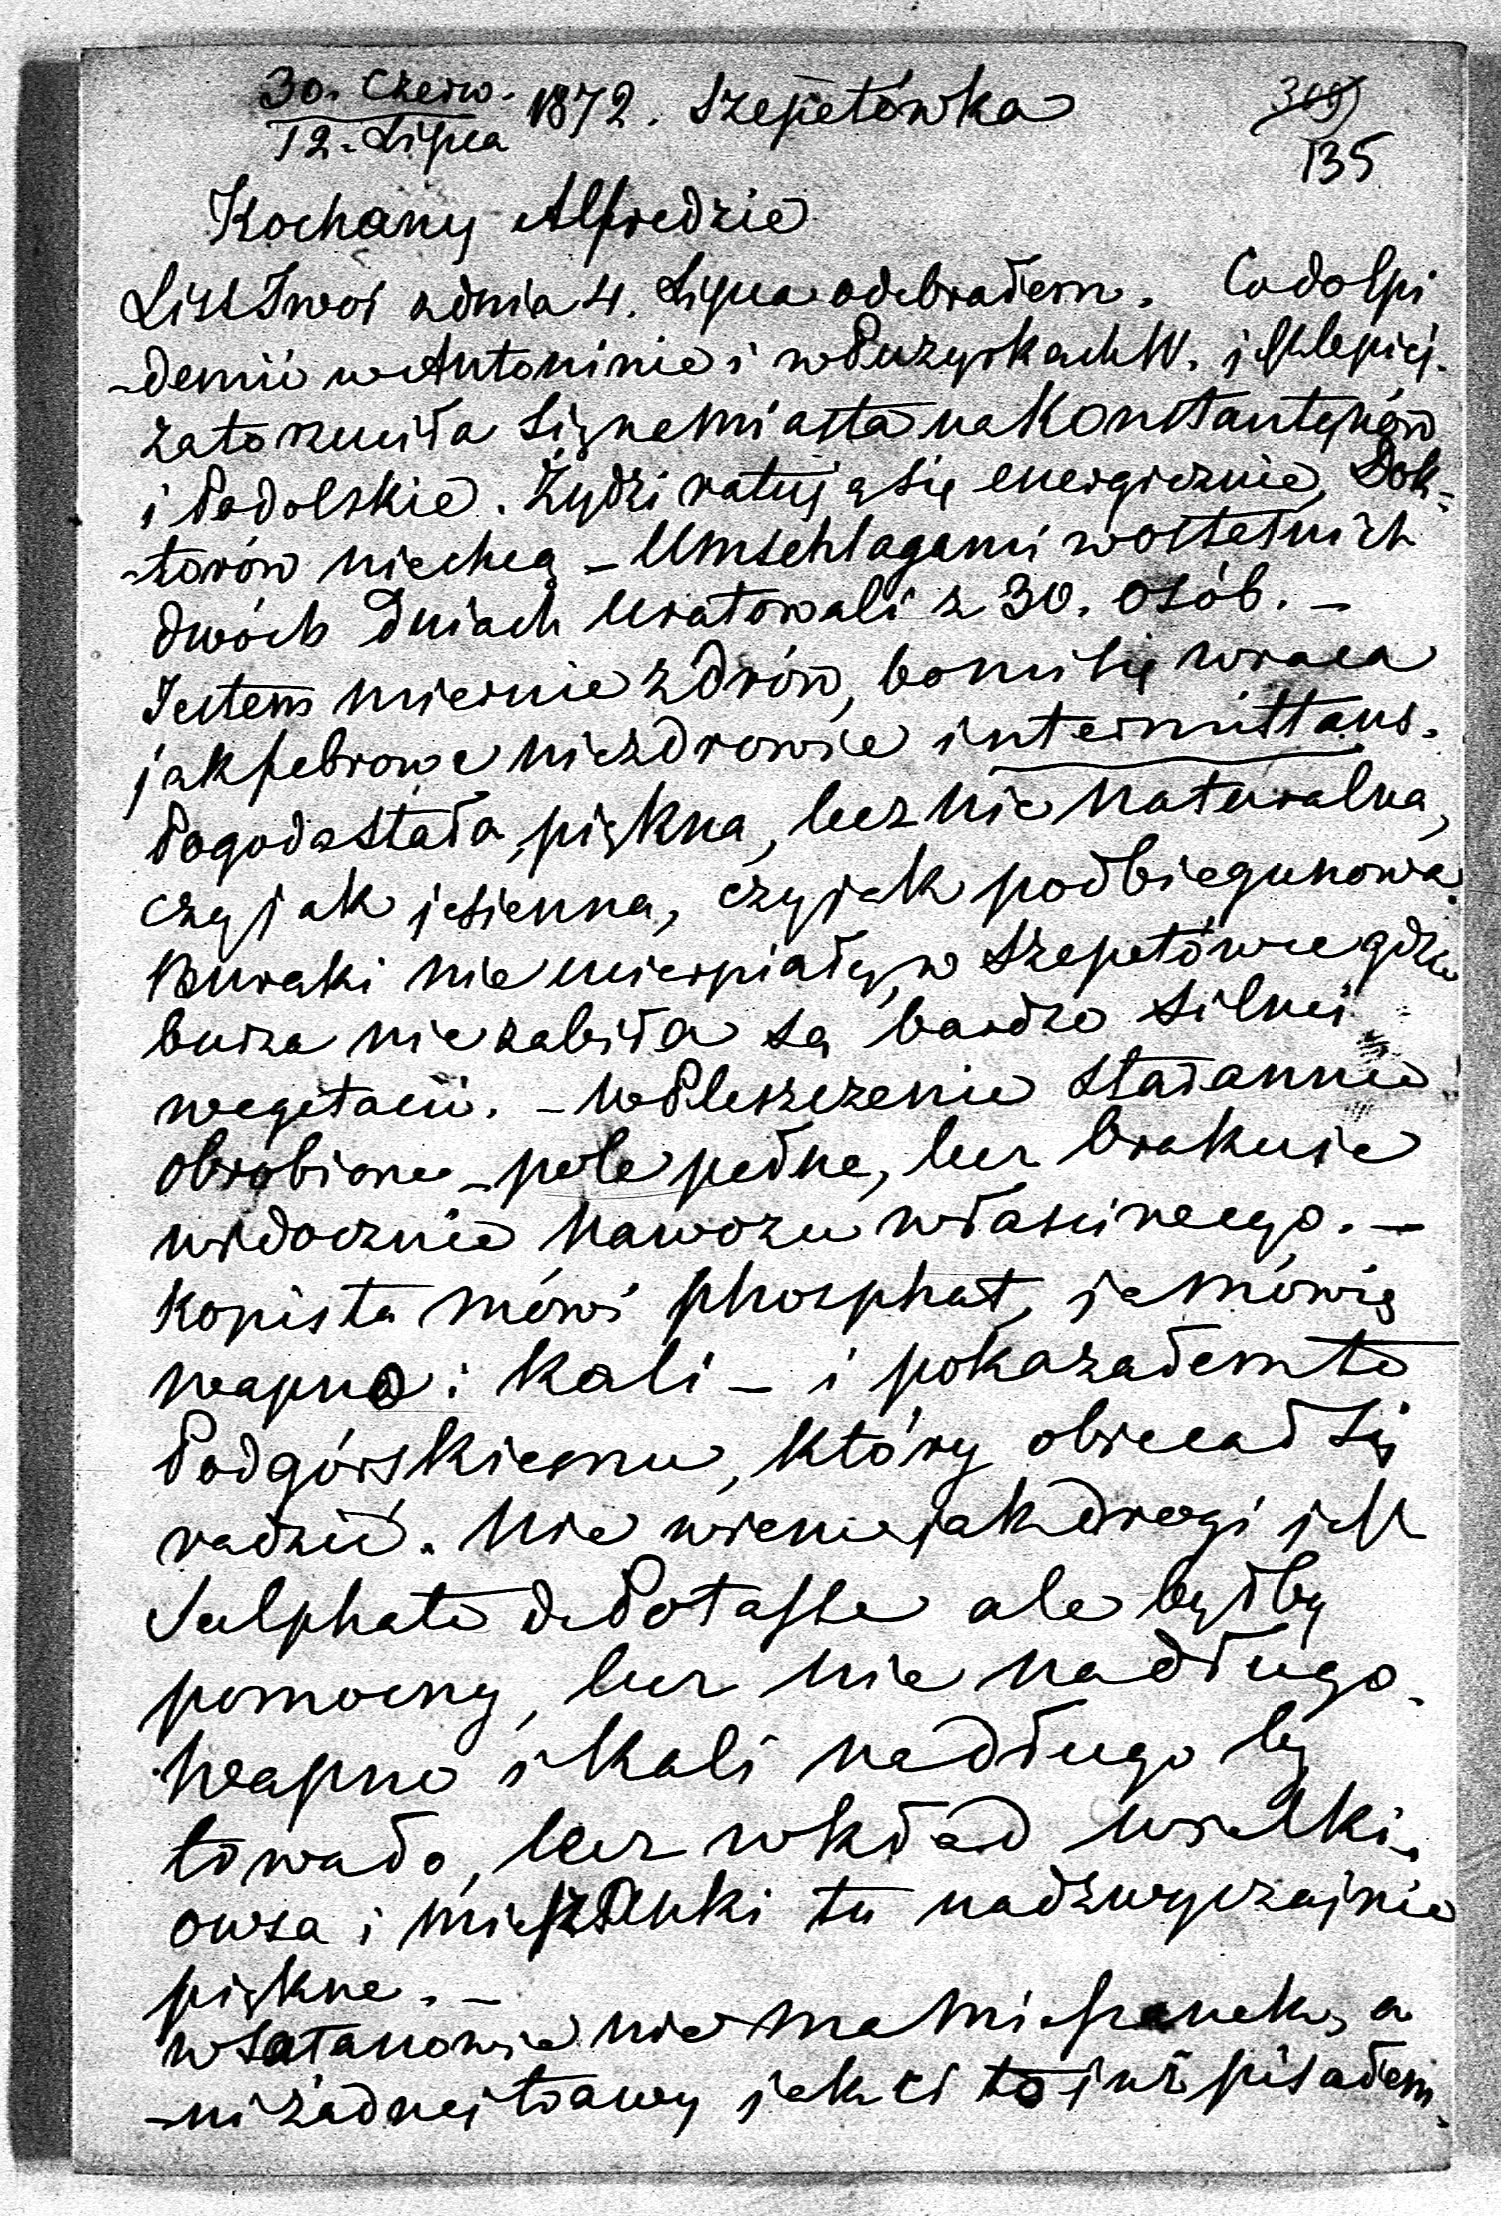 30. Czerw. 1872. Szepetówka
12. Lipca
309
135
Kochany Alfredzie
List Twój z dnia 4. Lipca odebrałem. Co do Epi
-demii w Antoninie i w Puzyrkach W. jest lepiej.
zato rzuciła się na miasta na Konstantynów
i Podolskie. Żydzi ratują się energicznie, Dok-
-torów niechcą – Umschlagami w ostatnich
dwóch Dniach Uratowali z 30. osób. –
Jestem miernie zdrów, bo mi się wraca
jak febrowe niezdrowie intermittans.
Pogoda stała, piękna, lecz nie naturalna,
czy jak jesienna, czy jak podbiegunowa.
Buraki nie ucierpiały, w Szepetówce gdzie
burza nie zabiła są bardzo silnej
wegetacii. – W Pleszczenie starannie
obrobione – pole pełne, lecz brakuje
widocznie nawozu właściwego. –
Kopista mówi phosphat, ja mówię
wapno i kali – i pokazałem to
Podgórskiemu, który obiecał się
radzić. Nie wiem jak drogi jest
Sulphate de Potasse ale byłby
pomocny, lecz nie nadługo.
Wapno i Kali nadługo by
towało, lecz wkład wielki.
owsa i mieszanki tu nadzwyczajnie
piękne. –
w Satanowie nie ma mieszanek, a
-ni żadnej trawy jak ci to już pisałem.